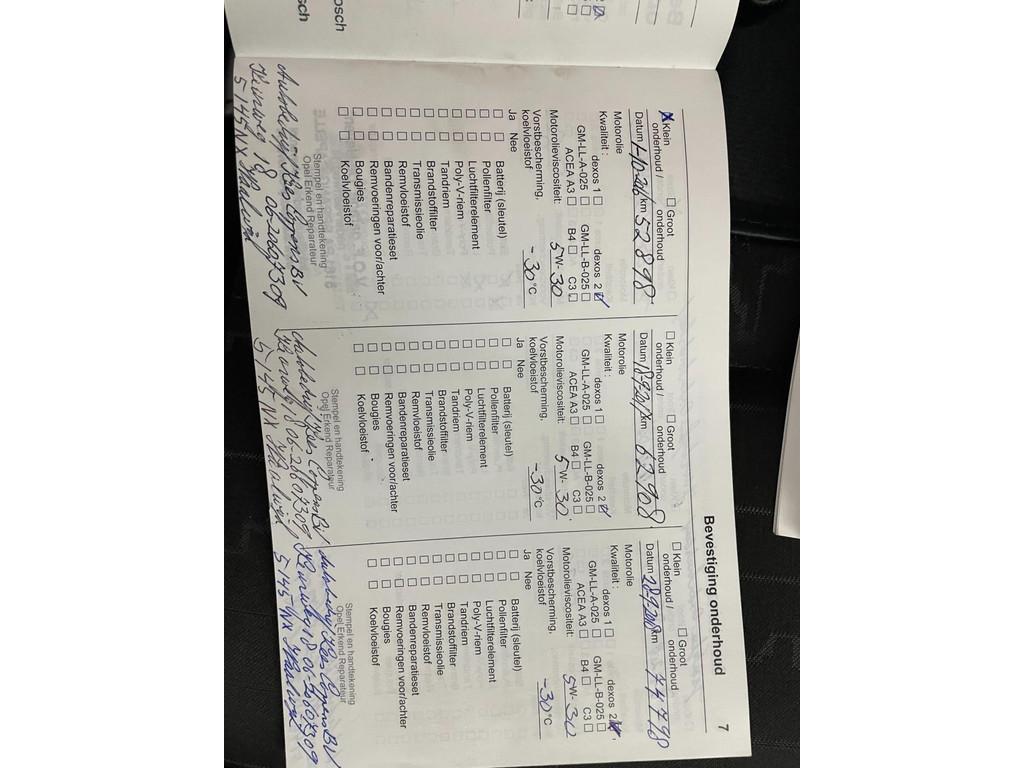 osch
sch
Bevestiging onderhoud
7
X Klein onderhoud /
Groot onderhoud
km 52898
Motorolie
Kwaliteit :
dexos 1
dexos 2
GM-LL-A-025
GM-LL-B-025
ACEA A3
B4
C3
Motorolieviscositeit: 5W-30
Vorstbescherming, koelvloeistof
-30°C
Ja Nee
Batterij (sleutel)
Pollenfilter
Luchtfilterelement
Poly-V-riem
Tandriem
Brandstoffilter
Transmissieolie
Remvloeistof
Bandenreparatieset
Remvoeringen voor/achter
Bougies
Koelvloeistof
Stempel en handtekening
Opel Erkend Reparateur
Autobedrijf Kees
BV
18
5145 NX Waalwijk
Klein onderhoud /
Groot onderhoud
km 62908
Motorolie
Kwaliteit :
dexos 1
dexos 2
GM-LL-A-025
GM-LL-B-025
ACEA A3
B4
C3
Motorolieviscositeit: 5W-30
Vorstbescherming, koelvloeistof
-30°C
Ja Nee
Batterij (sleutel)
Pollenfilter
Luchtfilterelement
Poly-V-riem
Tandriem
Brandstoffilter
Transmissieolie
Remvloeistof
Bandenreparatieset
Remvoeringen voor/achter
Bougies
Koelvloeistof
Stempel en handtekening
Opel Erkend Reparateur
Autobedrijf Kees
BV
18
5145 NX Waalwijk
Klein onderhoud /
Groot onderhoud
km 74798
Motorolie
Kwaliteit :
dexos 1
dexos 2
GM-LL-A-025
GM-LL-B-025
ACEA A3
B4
C3
Motorolieviscositeit: 5W-30
Vorstbescherming, koelvloeistof
-30°C
Ja Nee
Batterij (sleutel)
Pollenfilter
Luchtfilterelement
Poly-V-riem
Tandriem
Brandstoffilter
Transmissieolie
Remvloeistof
Bandenreparatieset
Remvoeringen voor/achter
Bougies
Koelvloeistof
Stempel en handtekening
Opel Erkend Reparateur
Autobedrijf Kees
BV
18
5145 NX Waalwijk